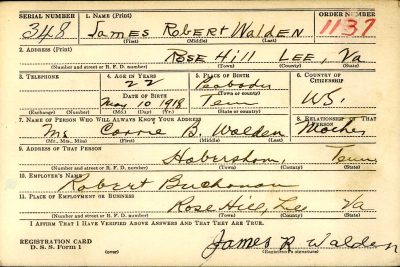 SERIAL NUMBER 1. NAME (Print) ORDER NUMBER
348 James Robert Walden 1137
(First) (Middle) (Last)
2. ADDRESS (Print)
Rose Hill Lee, Va
(Number and street or R. F. D. number) (Town) (County) (State)
3. TELEPHONE 4. AGE IN YEARS 5. PLACE OF BIRTH 6. COUNTRY OF CITIZENSHIP
22 Peabody
DATE OF BIRTH (Town or county)
May 10 1918 Tenn U.S.
(Exchange) (Number) (Mo.) (Day) (Yr.) (State or country)
7. NAME OF PERSON WHO WILL ALWAYS KNOW YOUR ADDRESS 8. RELATIONSHIP OF THAT PERSON
Carrie B. Walden Mother
(Mr., Mrs., Miss) (First) (Middle) (Last)
9. ADDRESS OF THAT PERSON
Habersham, Tenn
(Number and street or R. F. D. number) (Town) (County) (State)
10. EMPLOYER'S NAME
Robert Buchanan
11. PLACE OF EMPLOYMENT OR BUSINESS
Rose Hill, Lee Va
(Number and street or R. F. D. number) (Town) (County) (State)
I AFFIRM THAT I HAVE VERIFIED ABOVE ANSWERS AND THAT THEY ARE TRUE.
REGISTRATION CARD
D. S. S. Form 1 (over) James R Walden
(Registrant's signature)